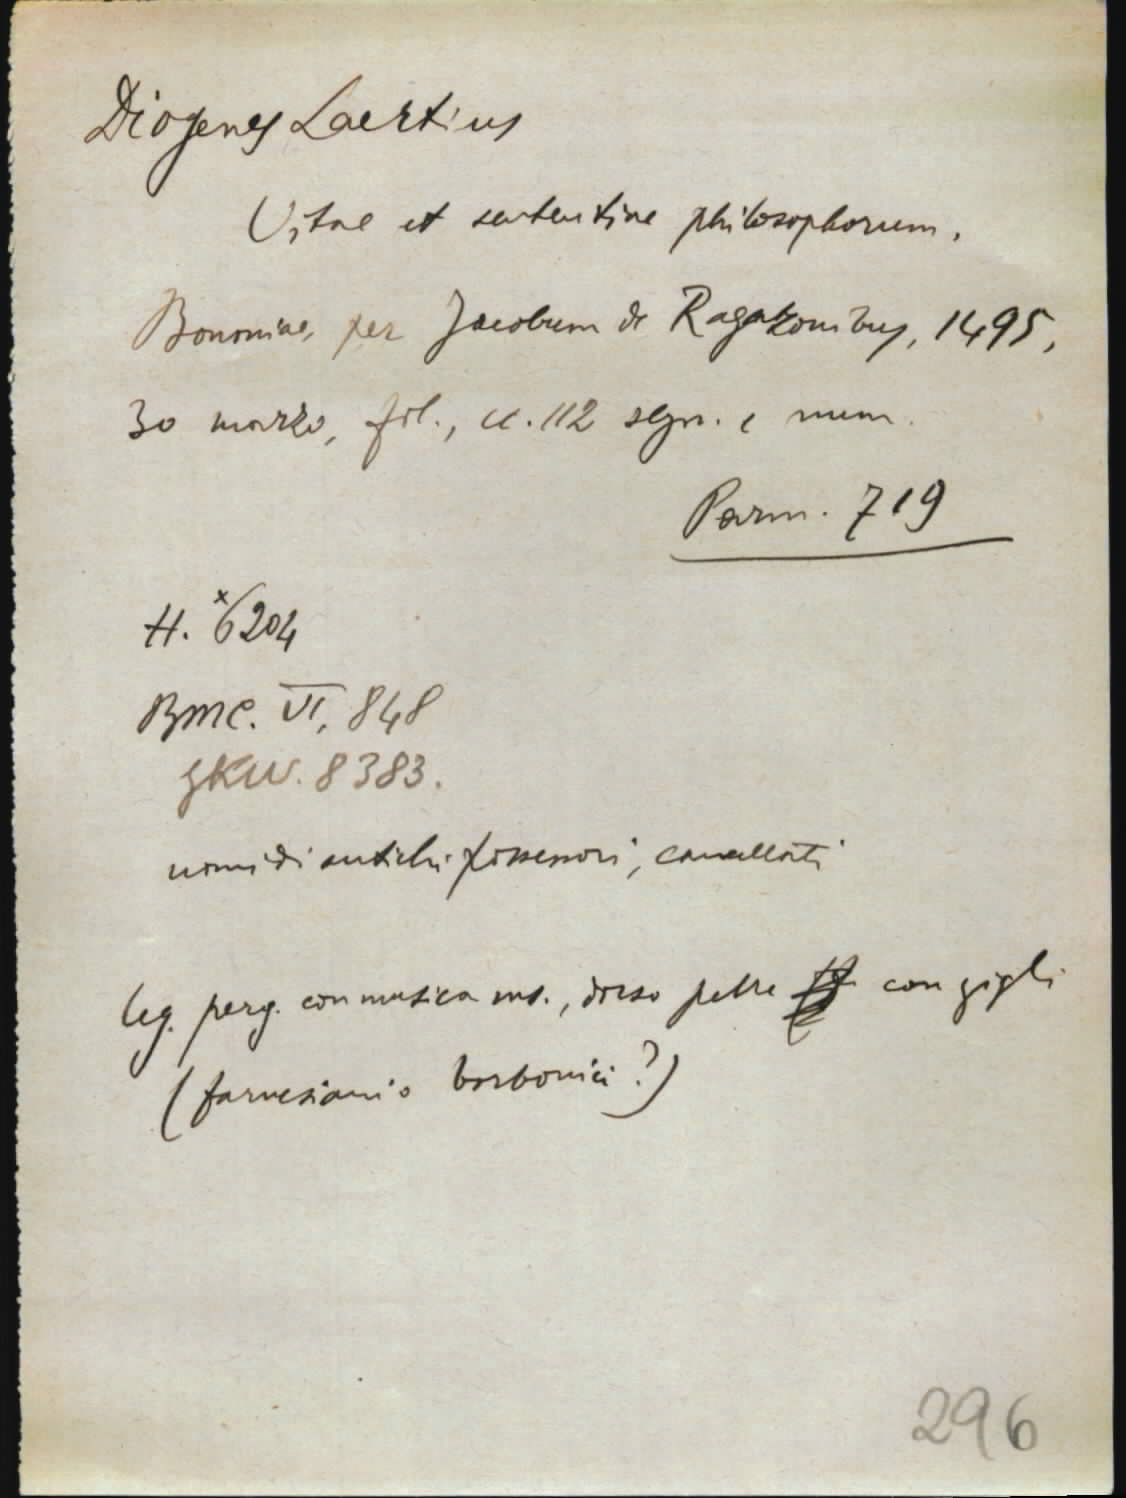 Diogenes Laertius
Vitae et sententiae philosophorum.
Bononiae, per Jacobum de Ragazonibus, 1495,
30 marzo, fol., cc. 112 segn. e num.
Parm. 719
H. x6204
BMC. VI, 848
GKW. 8383.
nomi di antichi possessori, cancellati
leg. perg. con musica ms., dorso pelle con gigli
(farnesiani o borbonici?)
296